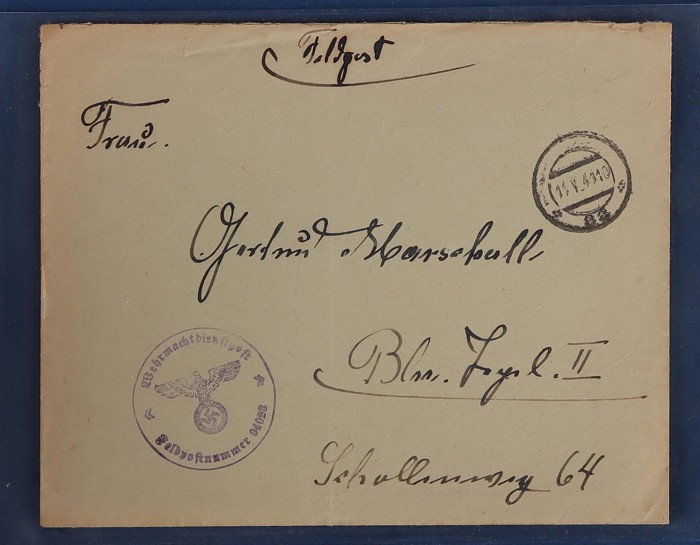 Feldpost
Frau.
Gertrud Marschall
Bln. Tegel. II
Schollenweg 64
11.V.41 10
aa
Wehrmachtdienstpost
Feldpostnummer 04098